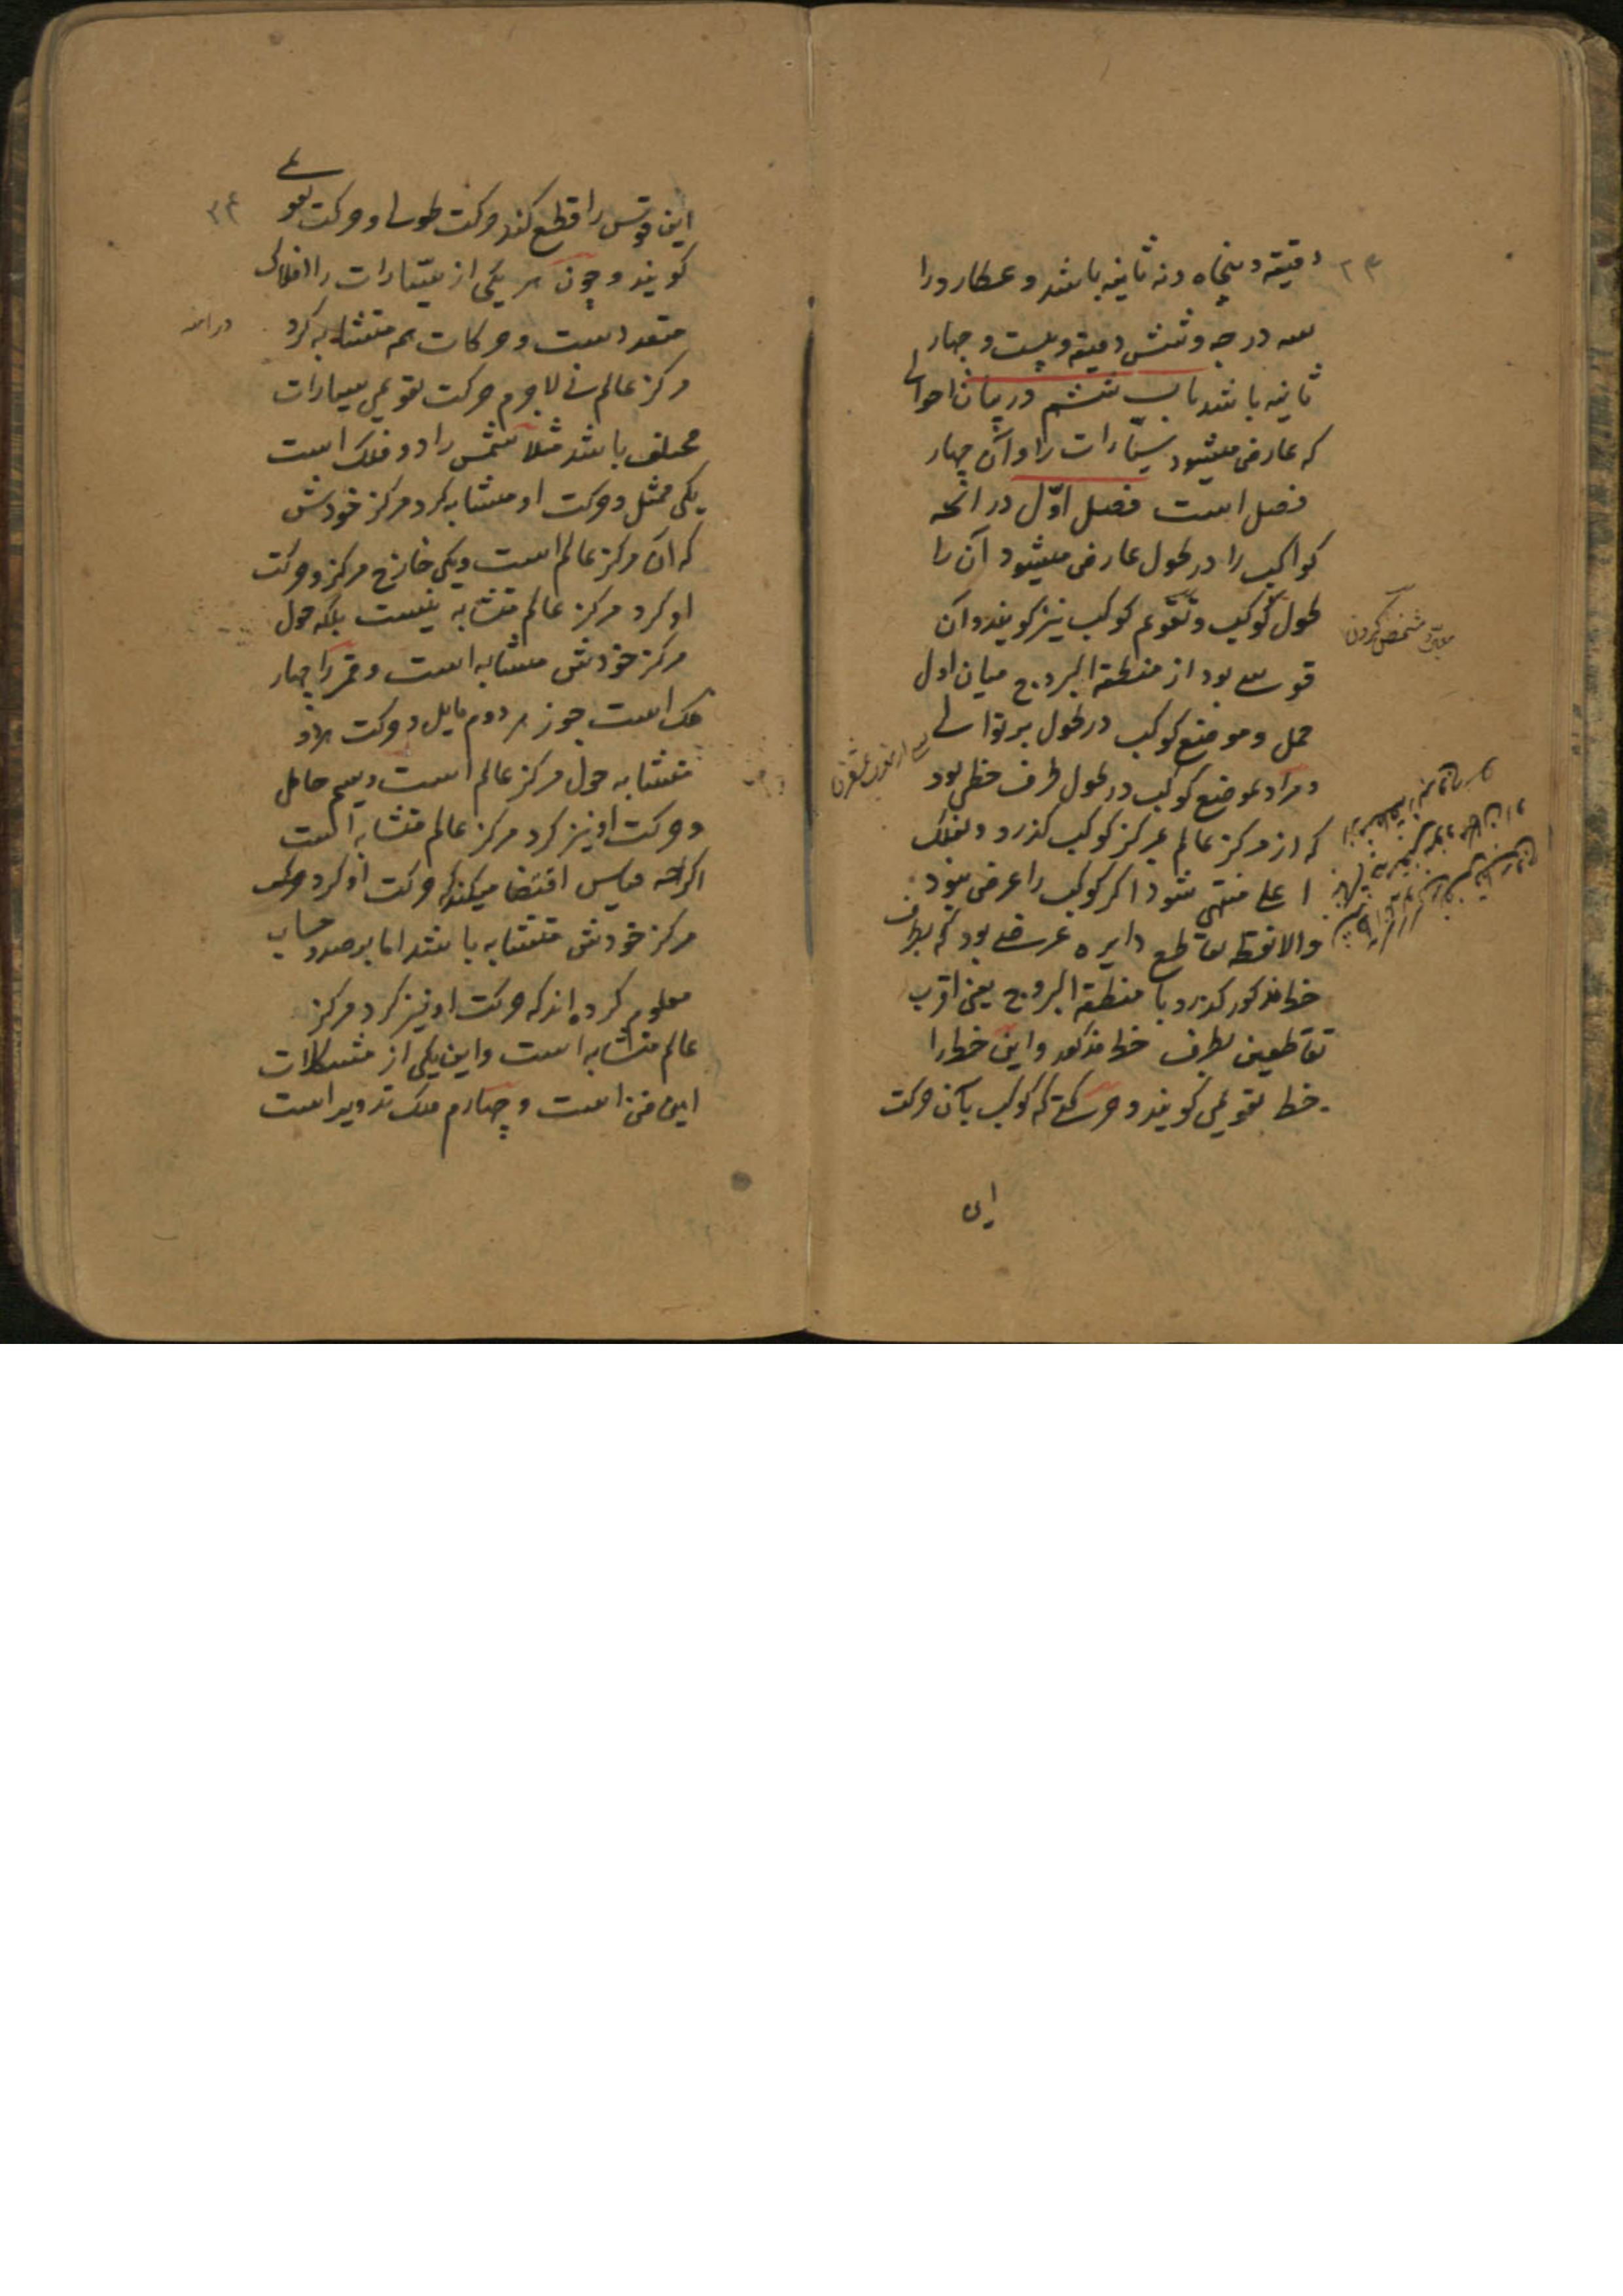 ۲۳
دقیقه و پنجاه و نه ثانیه باشد و عطارد را
سه درجه و شش دقیقه و بیست و چهار
ثانیه باشد باب ششم در بیان احوالی
که عارض میشود سیّارات را و آن چهار
فصل است فصل اوّل در آنچه
کواکب را در طول عارض میشود آن را
طول کوکب و تقویم کوکب نیز کویند و آن
قوسے بود از منطقة البروج میان اول
حمل و موضع کوکب در طول بر توالے
و مراد بموضع کوکب در طول طرف خطی بود
که از مرکز عالم بمرکز کوکب کذرد و بفلک
اعلے منتهی شود اکر کوکب را عرض نبود
والا نقطه تقاطع دایره عرضے بود که بطرف
خط مذکور کذرد با منطقة البروج یعنی اقرب
تقاطعین بطرف خط مذکور و این خط را
خط تقویمی کویند و حرکتے که کوکب بآن حرکت
این
مشخص کردن
۲۴
این قوس را قطع کند حرکت طولے و حرکت تقویمے
کویند و چون هر یکی از سیّارات را افلاکی
متعدد است و حرکات هم متشابه کرد
مرکز عالم نے لاجرم حرکت تقویمی سیارات
مختلف باشد مثلا شمس را دو فلک است
یکی ممثل و حرکت او متشابه کرد مرکز خودش
که آن مرکز عالم است و یکی خارج مرکز و حرکت
او کرد مرکز عالم متشابه نیست بلکه حول
مرکز خودش متشابه است و قمر را چهار
فلک است جوزهر دوم مایل و حرکت هر دو
متشابه حول مرکز عالم است و سیم حامل
و حرکت او نیز کرد مرکز عالم متشابه است
اکرچه قیاس اقتضا میکند که حرکت او کرد
مرکز خودش متشابه باشد اما برصد و حساب
معلوم کرده اند که حرکت او نیز کرد مرکز
عالم متشابه است و این یکی از مشکلات
این فن است و چهارم فلک تدویر است